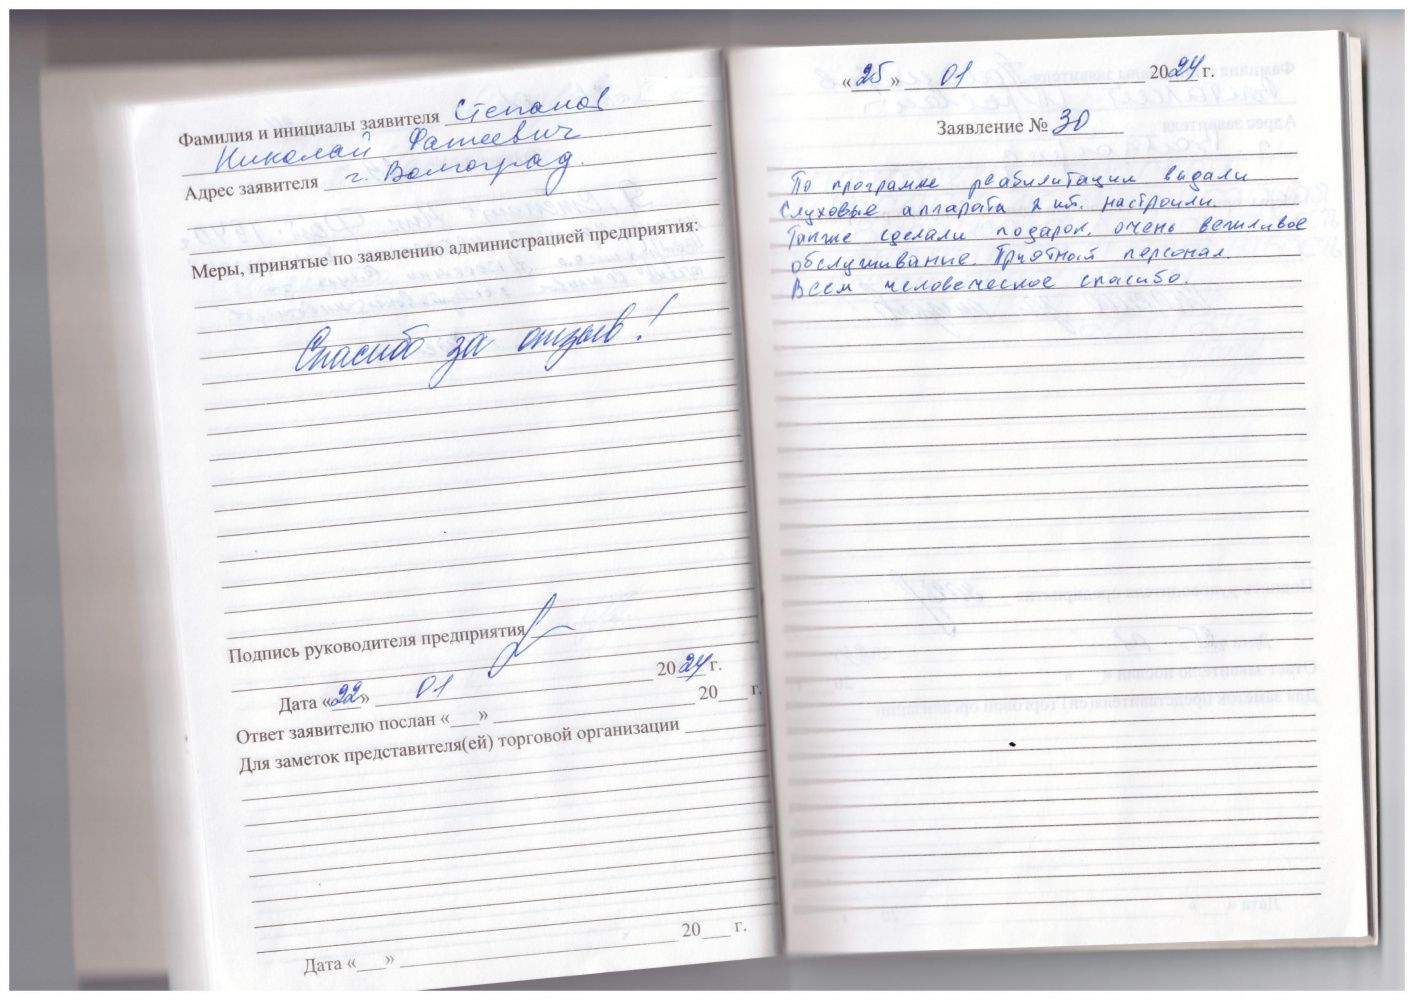 Фамилия и инициалы заявителя Степанов
Николай Фатеевич
Адрес заявителя г. Волгоград.
Меры, принятые по заявлению администрацией предприятия:
Спасибо за отзыв!
Подпись руководителя предприятия
Дата «22» 01 2024 г.
Ответ заявителю послан «___» 20___ г.
Для заметок представителя(ей) торговой организации
Дата «___» 20___ г.
«25» 01 2024 г.
Заявление № 30
По программе реабилитации выдали
слуховые аппарата 2 шт. настроили.
Также сделали подарок, очень вежливое
обслуживание. Приятный персонал.
Всем человеческое спасибо.